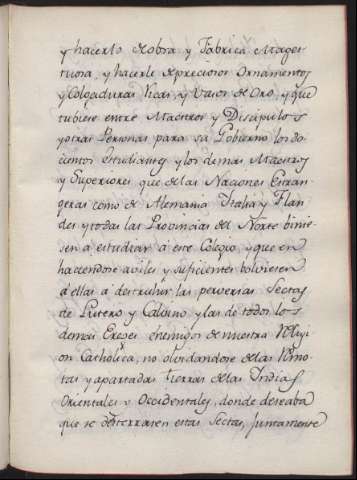 y hacerlo de obra y Fabrica Mages
tuosa, y hacerle de preciosos Ornamentos
y Colgaduras Ricas, y Vasos de Oro, y que
tubiese entre Maestros y Discipulos
y otras Personas para su Gobierno los do
cientos Estudiantes y los demas Maestros
y Superiores que de las Naciones Estran
geras como de Alemania Italia y Flan
des y todas las Provincias del Norte binie
sen â estudiar â este Colegio y que en
haciendose aviles y suficientes bolviesen
â ellas â destruhir las perversas Sectas
de Lutero y Calvino y las de todos los
demas Ereges enemigos de nuestra Religi
on Catholica, no olvidandose de las Remo
tas y apartadas tierras de las Indias
Orientales y Occidentales, donde deseaba
que se desterrasen estas Sectas, juntamente